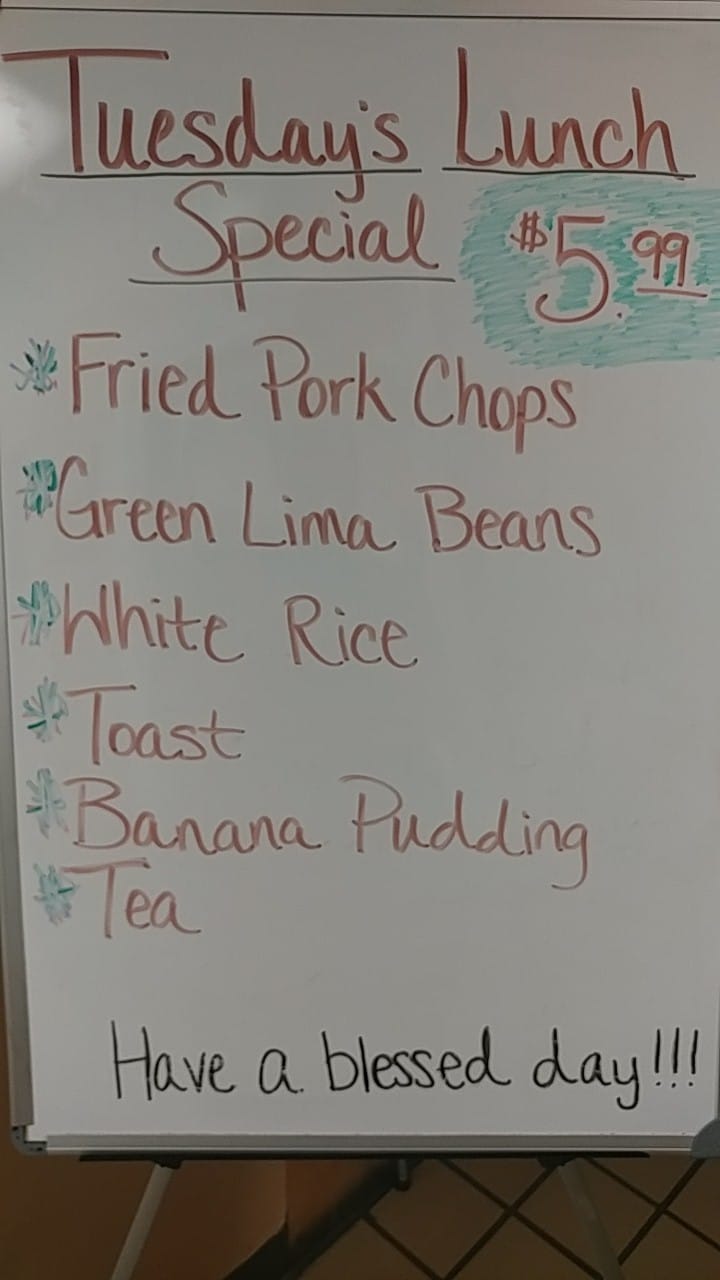 Tuesday's Lunch
Special $5.99
*Fried Pork Chops
*Green Lima Beans
*White Rice
*Toast
*Banana Pudding
*Tea
Have a blessed day!!!